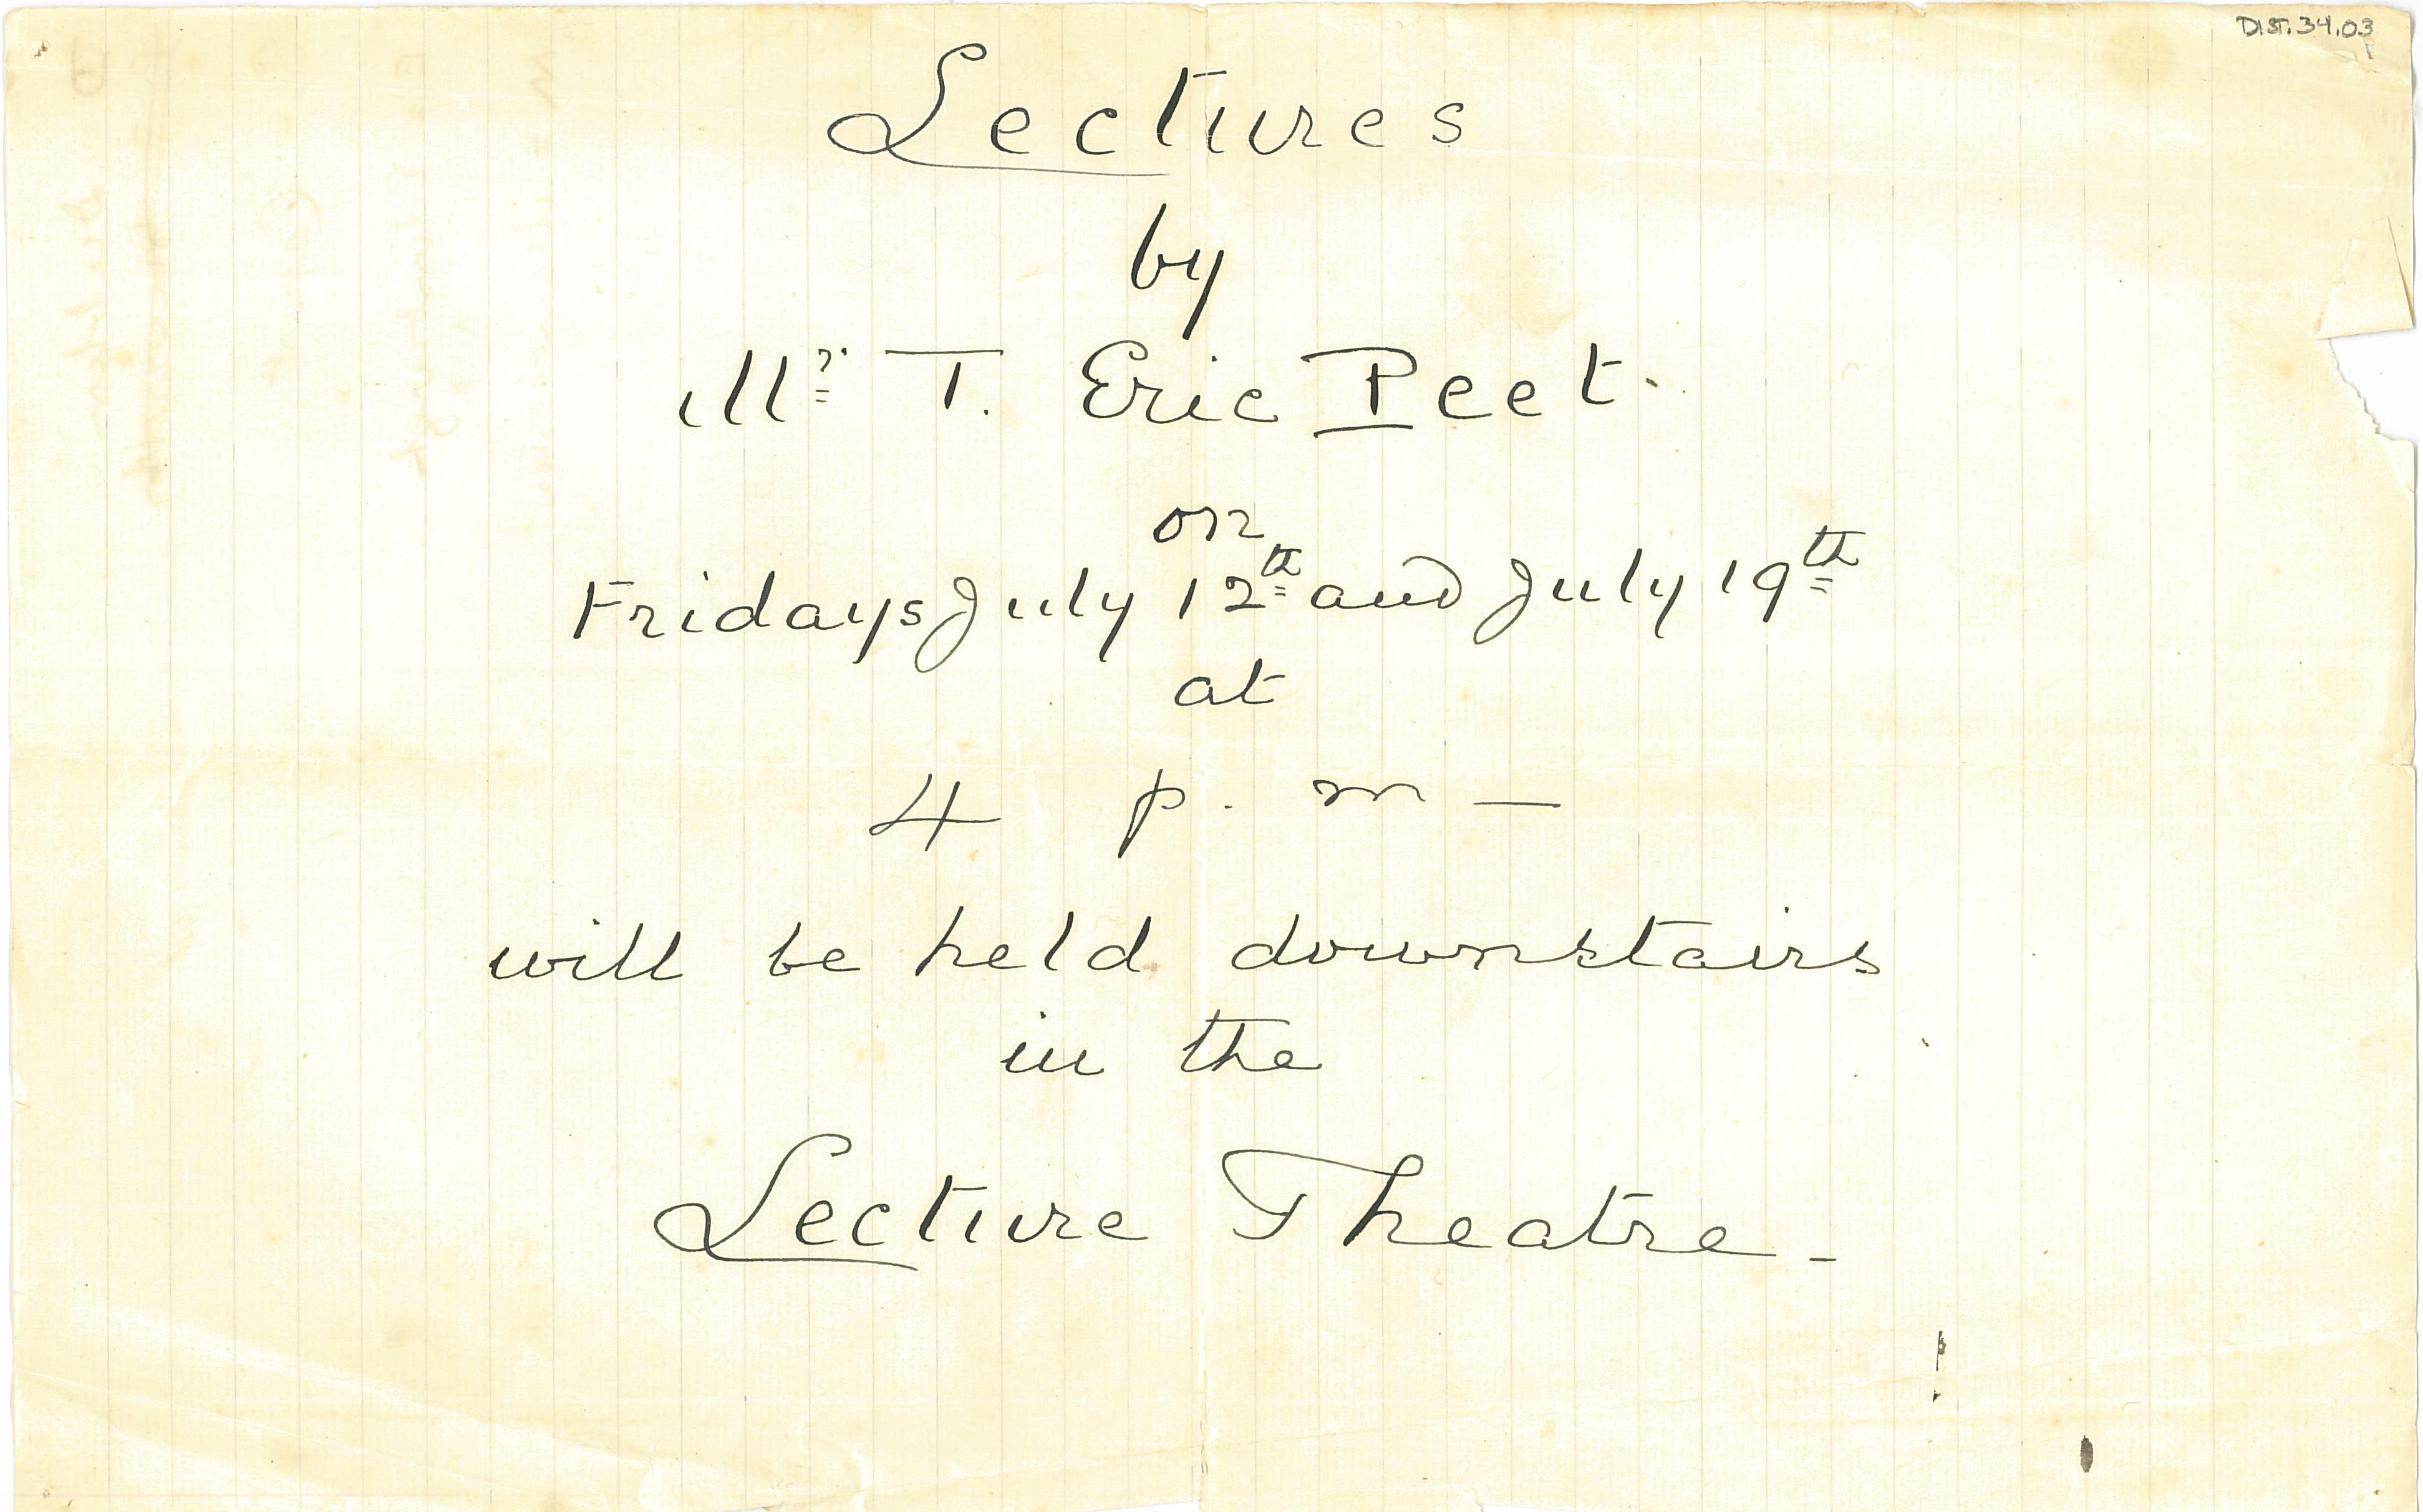 DIST.34.03
Lectures
by
Mr. T. Eric Peet.
on
Fridays July 12th and July 19th
at
4 p. m —
will be held downstairs
in the
Lecture Theatre -